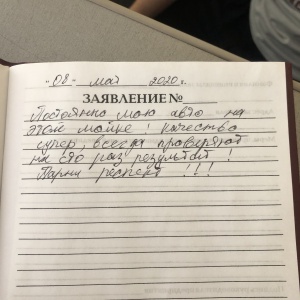 "08" мая 2020 г.
ЗАЯВЛЕНИЕ №
Постоянно мою авто на
этой мойке! качество
супер, всегда проверяют
на сто раз результат!
Парни респект !!!